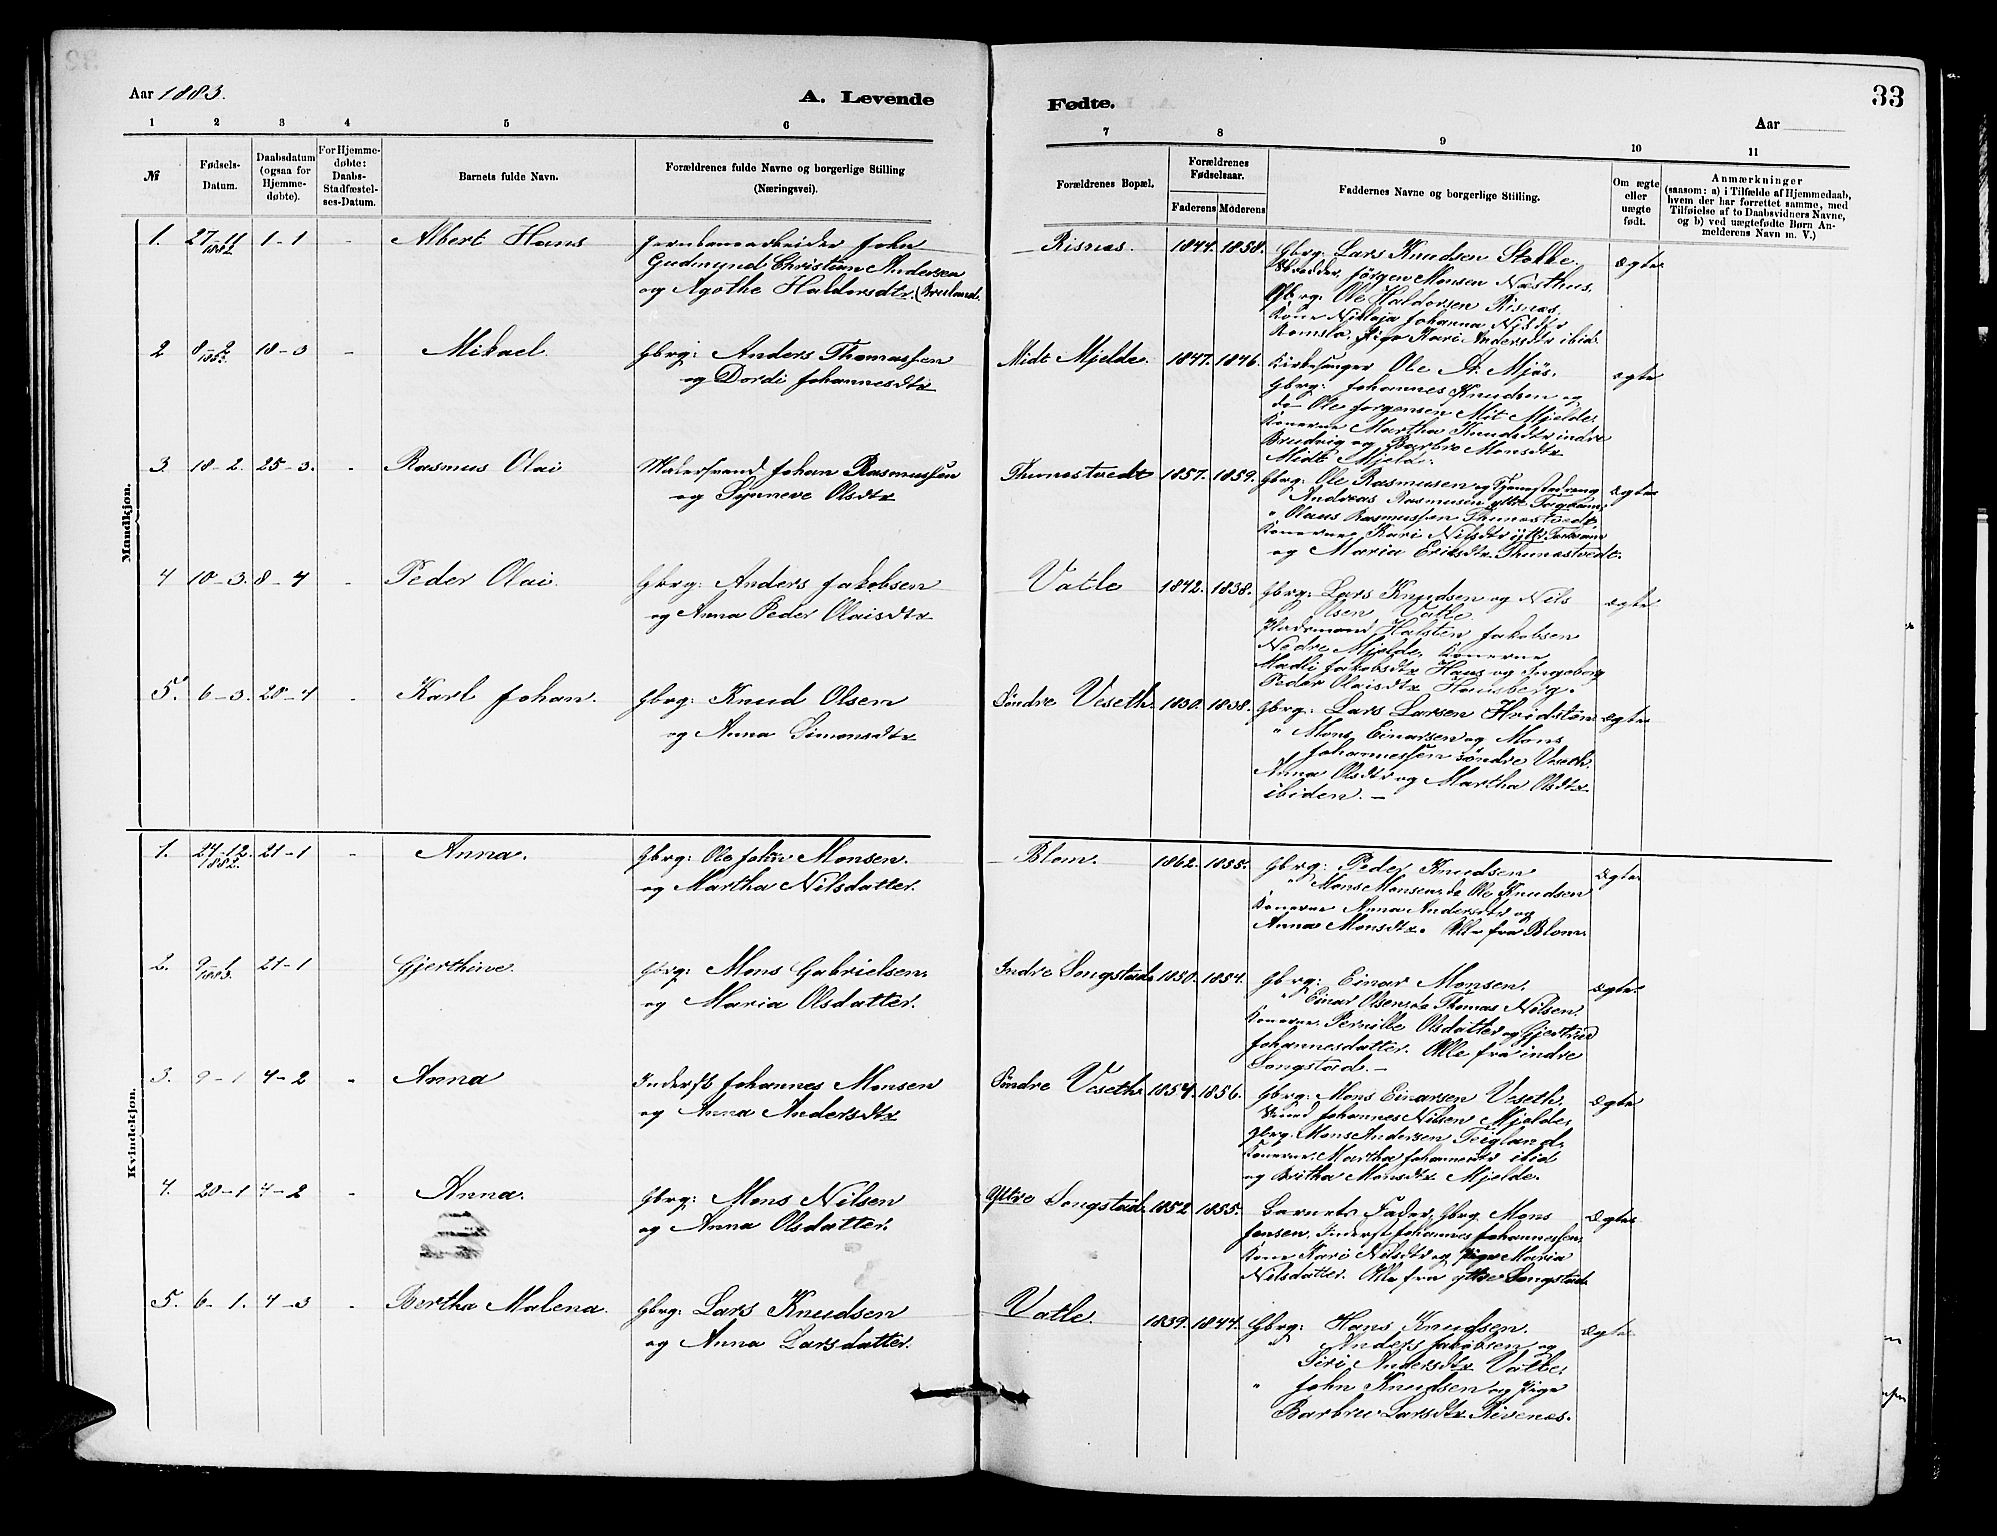 Aar 1883. A. Levende
Fødte. 33
Aar
1 2 3 4 5 6 7 8 9 10 11
№
Fødsels-
Datum.
Daabsdatum
(ogsaa for
Hjemme-
døbte).
For Hjemme-
døbte:
Daabs-
Stadfæstel-
ses-Datum.
Barnets fulde Navn.
Forældrenes fulde Navne og borgerlige Stilling
(Næringsvei).
Forældrenes Bopæl.
Forældrenes
Fødselsaar.
Faderens Moderens
Faddernes Navne og borgerlige Stilling.
Om ægte
eller
uægte
født.
Anmærkninger
(saasom: a) i Tilfælde af Hjemmedaab,
hvem der har forrettet samme, med
Tilføielse af to Daabsvidners Navne,
og b) ved uægtefødte Børn An-
melderens Navn m. V.)
Mandkjøn.
1. 27-11 1882 1-1 - Albert Hans
Jernbanearbeider John
Gudmund Christian Andersen
og Agathe Haldorsdtr.
Risnæs. 1844. 1858.
Gbrg: Lars Knudsen Stokke.
Skredder Jørgen Monsen Næsthus.
Gbrg: Ole Haldorsen Risnæs,
Kone Nikolaja Johanna Nilsdtr
Pige Kari Andersdtr ibid.
ægte
2 18-3 - Mikael.
Gbrg: Anders Thomassen
og Dordi Johannesdtr
Midt Mjelde. 1847. 1846.
Kirkesanger Ole A. Mjøs.
Gbrg: Johannes Knudsen og
do Ole Jørgensen Mit Mjelde.
Konerne Martha Knudsdtr indre
Bruvig og Barbro Monsdtr
Midt Mjelde.
ægte
3. 18-2. 25-3. - Rasmus Olai
Johan Rasmussen
og Synneve Olsdtr
Thunestvedt 1857. 1859.
Gbrg: Ole Rasmusen og Tjenestedreng
Andreas Rasmusen ytte
" Olaus Rasmussen Thunestvedt,
Konerne Kari Nilsdtr ytt.
og Maria Eriksdtr Thunestvedt.
ægte
4 10-3. 8-4 - Peder Olai.
Gbrg: Anders Jakobsen
og Anna Peder Olaisdtr
Vatle 1842. 1838.
Gbrg: Lars Knudsen og Nils
Olsen Vatle
Pladsmand Halsten Jakobsen
Nedre Mjelde, Konerne
Madli Jakobsdtr Haus og Ingeborg
Peder Olaisdtr Hausberg.
ægte
5. 6-3. 20-4 - Karl Johan.
Gbrg: Knud Olsen
og Anna Simonsdtr
Søndre Veseth. 1830. 1838.
Gbrg: Lars Larsen
" Mons Einarsen og Mons
Johannessen søndre Veseth.
Anna Olsdtr og Martha Olsdtr
ibiden. -
ægte
Kvindekjøn.
1. 24-12. 1882. 21-1 - Anna.
Gbrg: Ole John Monsen.
og Martha Nilsdatter.
Blom. 1862. 1855.
Gbrg: Peder Knudsen
" Mons Monsen, do Ole Knudsen
Konerne Anna Andersdtr og
Anna Monsdtr. Alle fra Blom.
ægte
2. 9-1 1883. 21-1 Gjerthine.
Gbrg: Mons Gabrielsen.
og Maria Olsdatter.
Indre Songstad. 1850. 1854.
Gbrg: Einar Monsen.
" Einar Olsen, do Thomas Nilsen.
Konerne Pernille Olsdatter og Gjertrud
Johannesdatter. Alle fra indre
Songstad. -
ægte.
3. 9-1 4-2 - Anna
Inderst Johannes Monsen
og Anna Andersdtr
Søndre Veseth. 1854. 1856.
Gbrg: Mons Einarsen Veseth.
Johannes Nilsen Mjelde,
Gbrg: Mons Andersen Teigland,
Konerne Martha Johannesdtr ibid
og Britha Monsdtr Mjelde.
ægte
4. 20-1 4-2 - Anna.
Gbrg: Mons Nilsen
og Anna Olsdatter.
Yttre Songstad. 1852 1855.
Barnets Fader, Gbrg Mons
Jensen, Inderst Johannes Johannessen,
Kone Kari Nilsdtr og Pige Maria
Nilsdatter. Alle fra yttre Songstad.
ægte
5. 6-1. 4-3 - Bertha Malena.
Gbrg: Lars Knudsen
og Anna Larsdatter.
Vatle. 1839. 1844.
Gbrg: Hans Knudsen.
" Anders Jakobsen og
Siri Andersdtr Vatle,
" John Knudsen og Pige
Barbru Larsdtr Rivenæs.
ægte